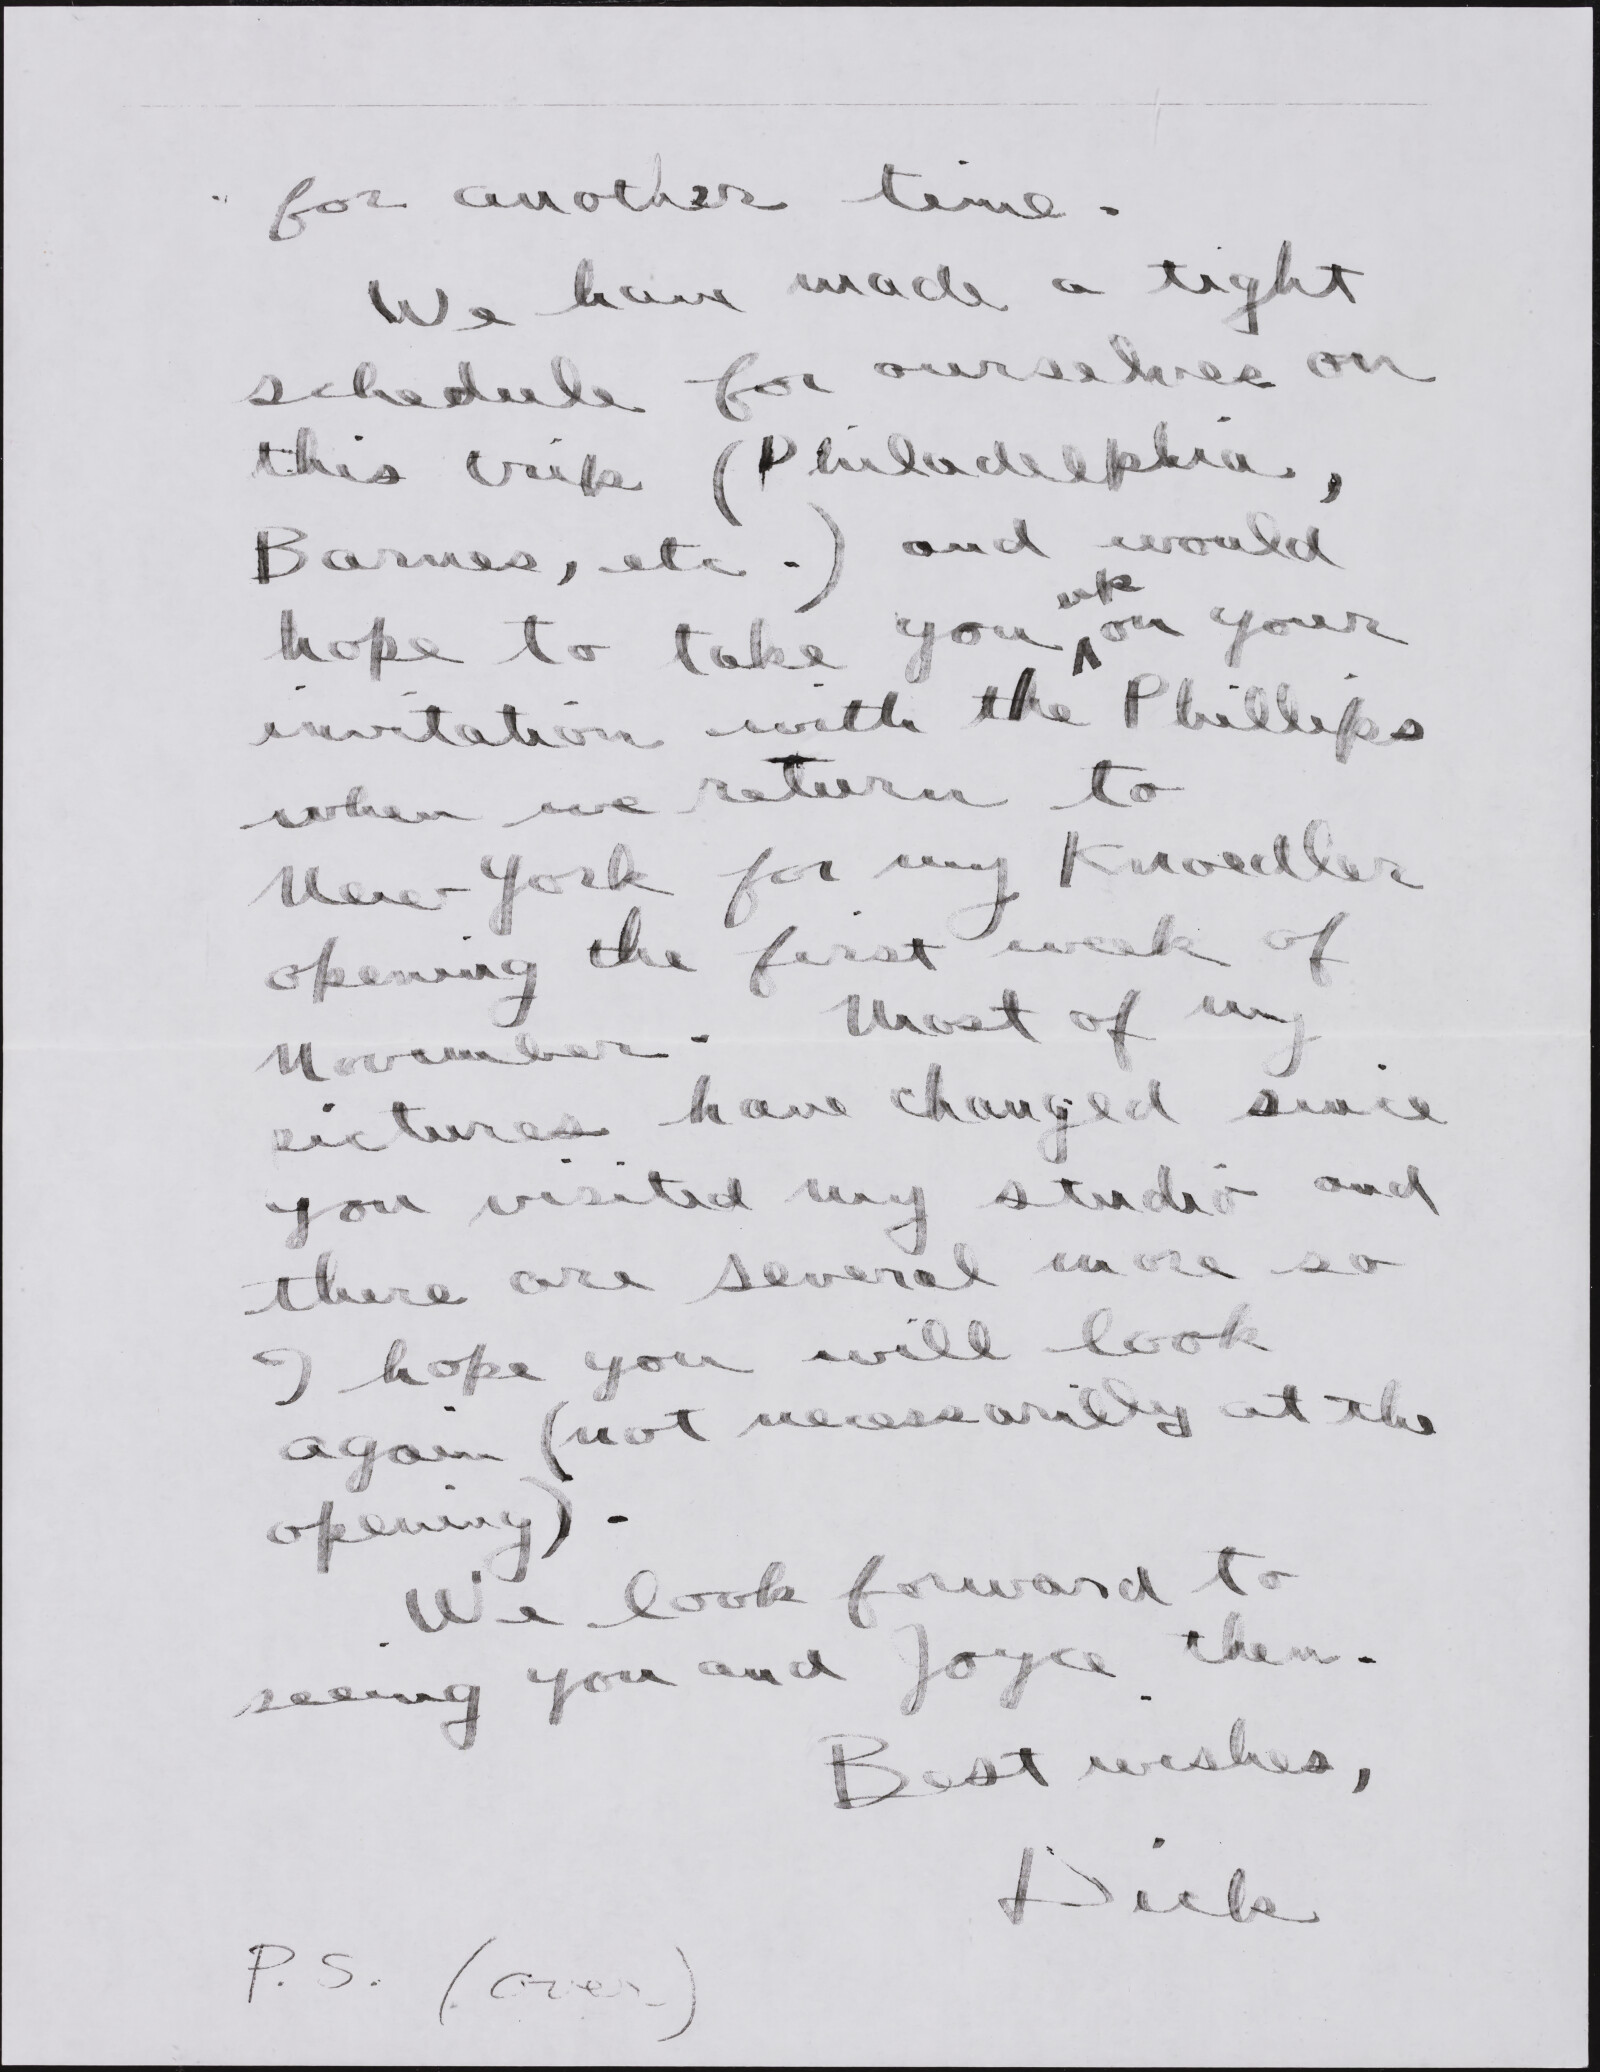 for another time.
We have made a tight
schedule for ourselves on
this trip (Philadelphia,
Barnes, etc.) and would
hope to take you up on your
invitation with the Phillips
when we return to
New York for my Knoedler
opening the first week of
November. Most of my
pictures have changed since
you visited my studio and
there are several more so
I hope you will look
again (not necessarily at the
opening).
We look forward to
seeing you and Joyce then.
Best wishes,
Dick
P.S. (over)